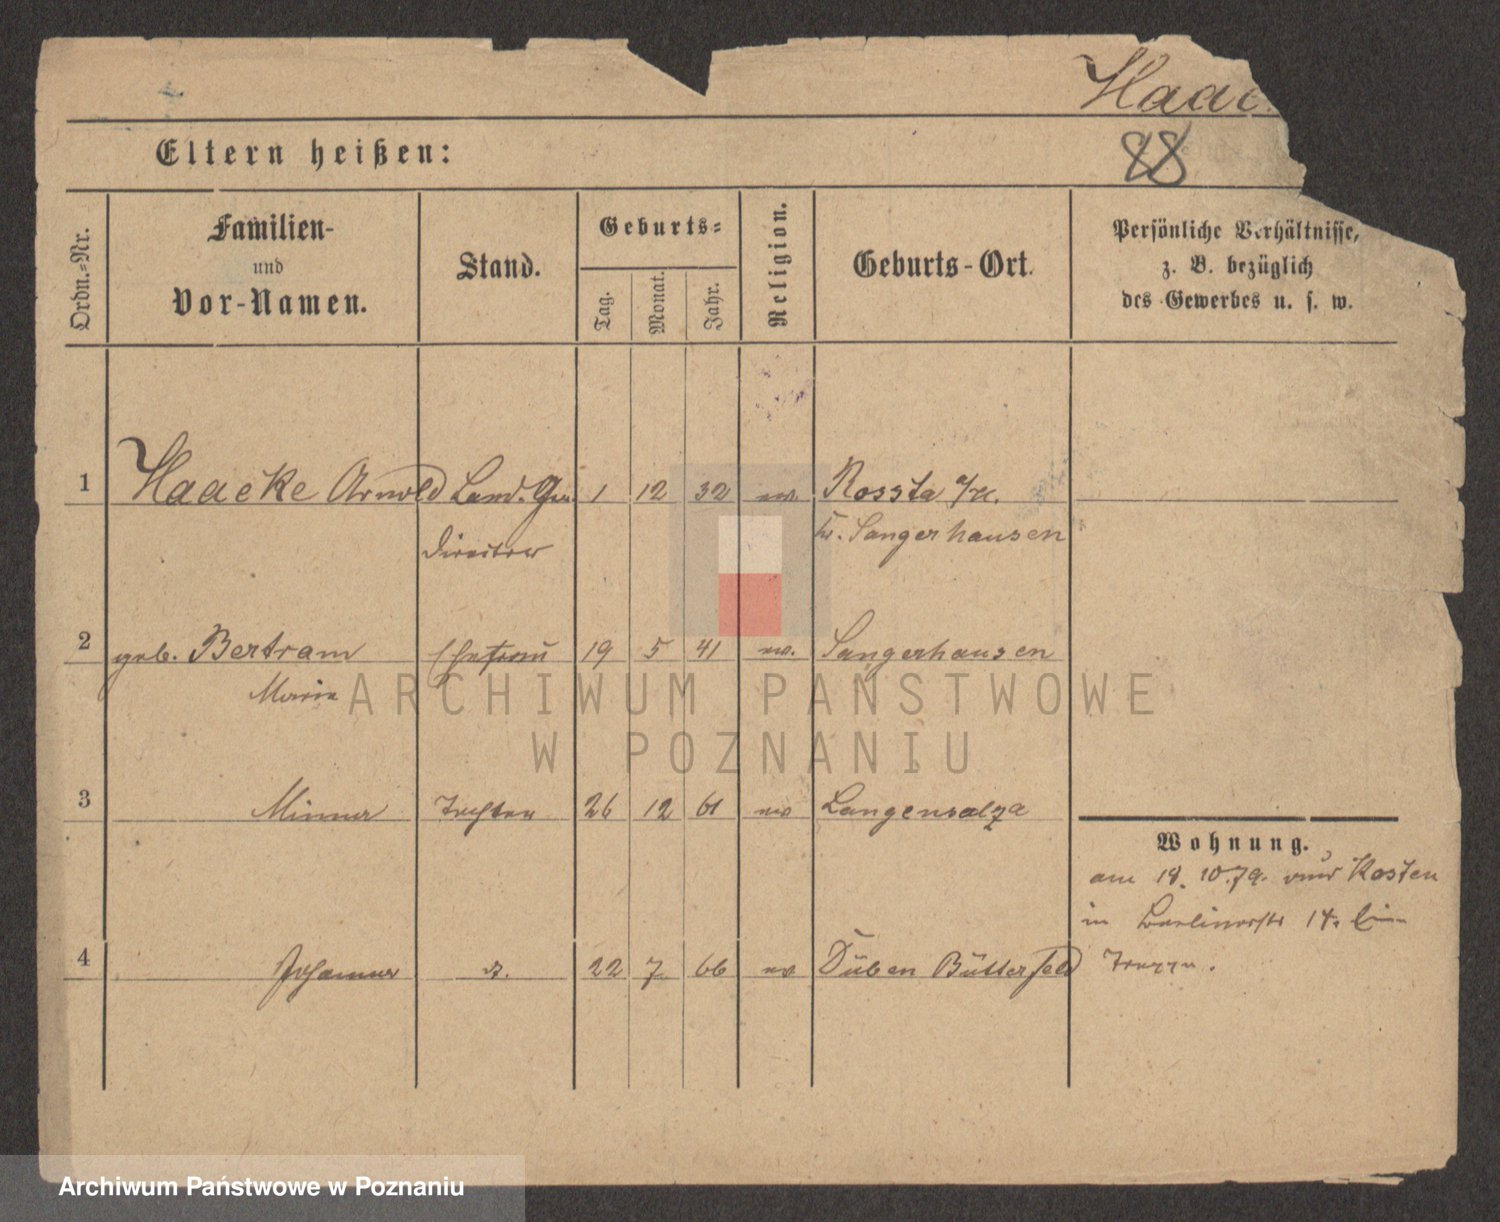 Haac
88
Eltern heißen:
Ordn.=Nr.
Familien-
und
Vor-Namen.
Stand.
Geburts=
Tag.
Monat.
Jahr.
Religion.
Geburts-Ort.
Persönliche Verhältnisse,
z. B. bezüglich
des Gewerbes u. s. w.
1 Haacke Arnold Land. 1 12 32 ev Rossla
Director Kr. Sangerhausen
2 geb. Bertram Ehefrau 19 5 41 ev. Sangerhausen
Marie
3 Minna Tochter 26 12 61 ev Langensalza
4 Johanna 22 7 66 ev Düben Bitterfeld
Wohnung.
am 18. 10. 79. Kosten
in Berlinerstr 14.
ARCHIWUM PAŃSTWOWE
W POZNANIU
Archiwum Państwowe w Poznaniu